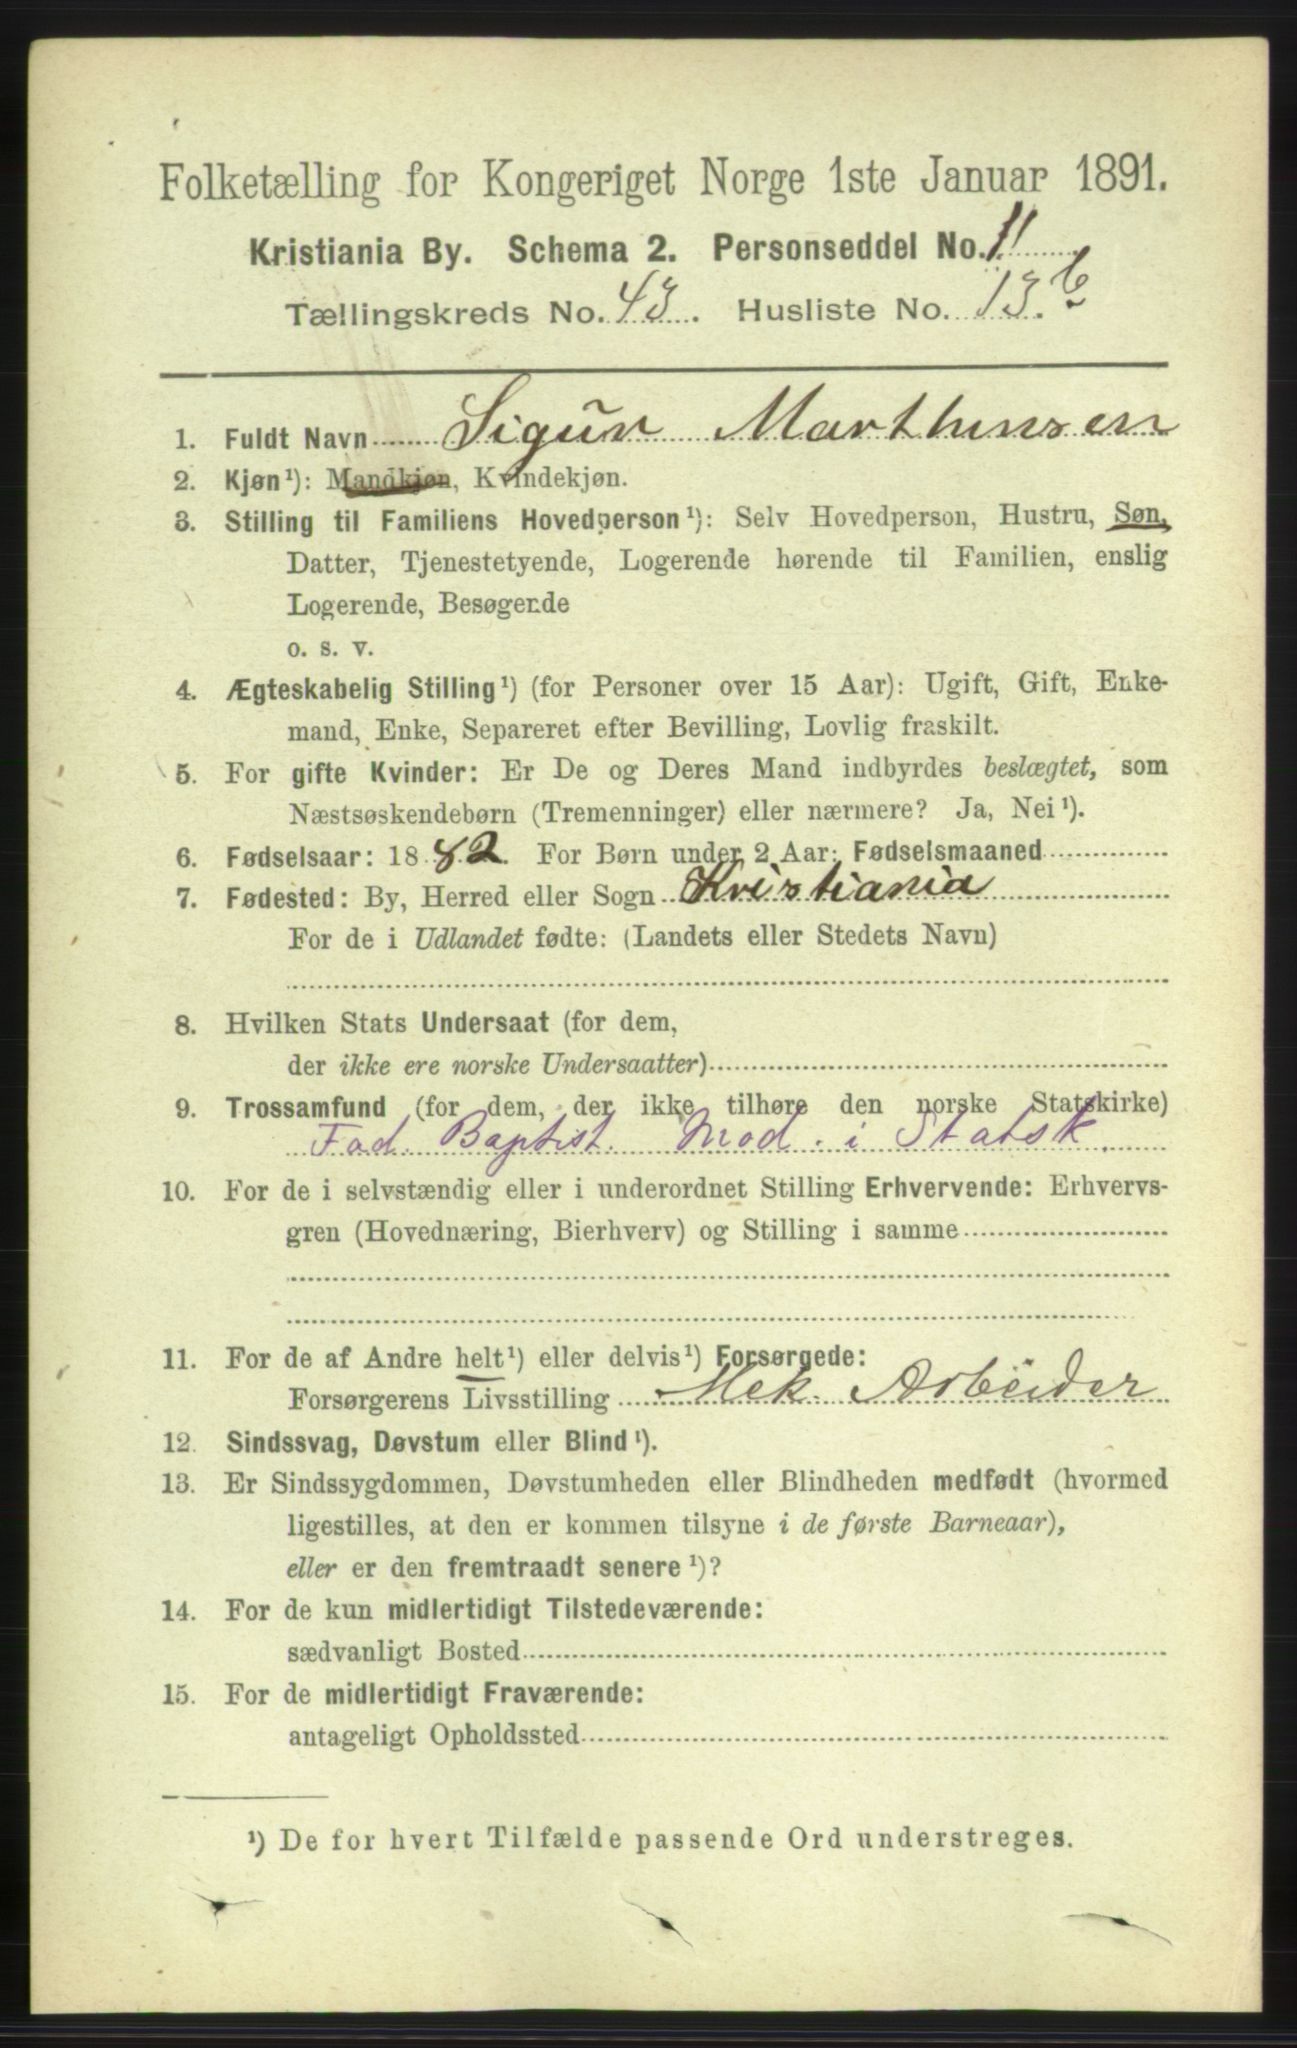 Folketælling for Kongeriget Norge 1ste Januar 1891.
Kristiania By. Schema 2. Personseddel No. 11
Tællingskreds No. 43. Husliste No. 13.b
1. Fuldt Navn Sigur Marthinsen
2. Kjøn¹): Mandkjøn, Kvindekjøn.
3. Stilling til Familiens Hovedperson¹): Selv Hovedperson, Hustru, Søn,
Datter, Tjenestetyende, Logerende hørende til Familien, enslig
Logerende, Besøgende
o. s. v.
4. Ægteskabelig Stilling¹) (for Personer over 15 Aar): Ugift, Gift, Enke-
mand, Enke, Separeret efter Bevilling, Lovlig fraskilt.
5. For gifte Kvinder: Er De og Deres Mand indbyrdes beslægtet, som
Næstsøskendebørn (Tremenninger) eller nærmere? Ja, Nei¹).
6. Fødselsaar: 1882. For Børn under 2 Aar: Fødselsmaaned
7. Fødested: By, Herred eller Sogn Kristiania
For de i Udlandet fødte: (Landets eller Stedets Navn)
8. Hvilken Stats Undersaat (for dem,
der ikke ere norske Undersaatter)
9. Trossamfund (for dem, der ikke tilhøre den norske Statskirke)
Fad. Baptist. Mod. i Statsk.
10. For de i selvstændig eller i underordnet Stilling Erhvervende: Erhvervs-
gren (Hovednæring, Bierhverv) og Stilling i samme
11. For de af Andre helt¹) eller delvis¹) Forsørgede:
Forsørgerens Livsstilling Mek. Arbeider
12. Sindssvag, Døvstum eller Blind¹).
13. Er Sindssygdommen, Døvstumheden eller Blindheden medfødt (hvormed
ligestilles, at den er kommen tilsyne i de første Barneaar),
eller er den fremtraadt senere¹)?
14. For de kun midlertidigt Tilstedeværende:
sædvanligt Bosted
15. For de midlertidigt Fraværende:
antageligt Opholdssted
¹) De for hvert Tilfælde passende Ord understreges.